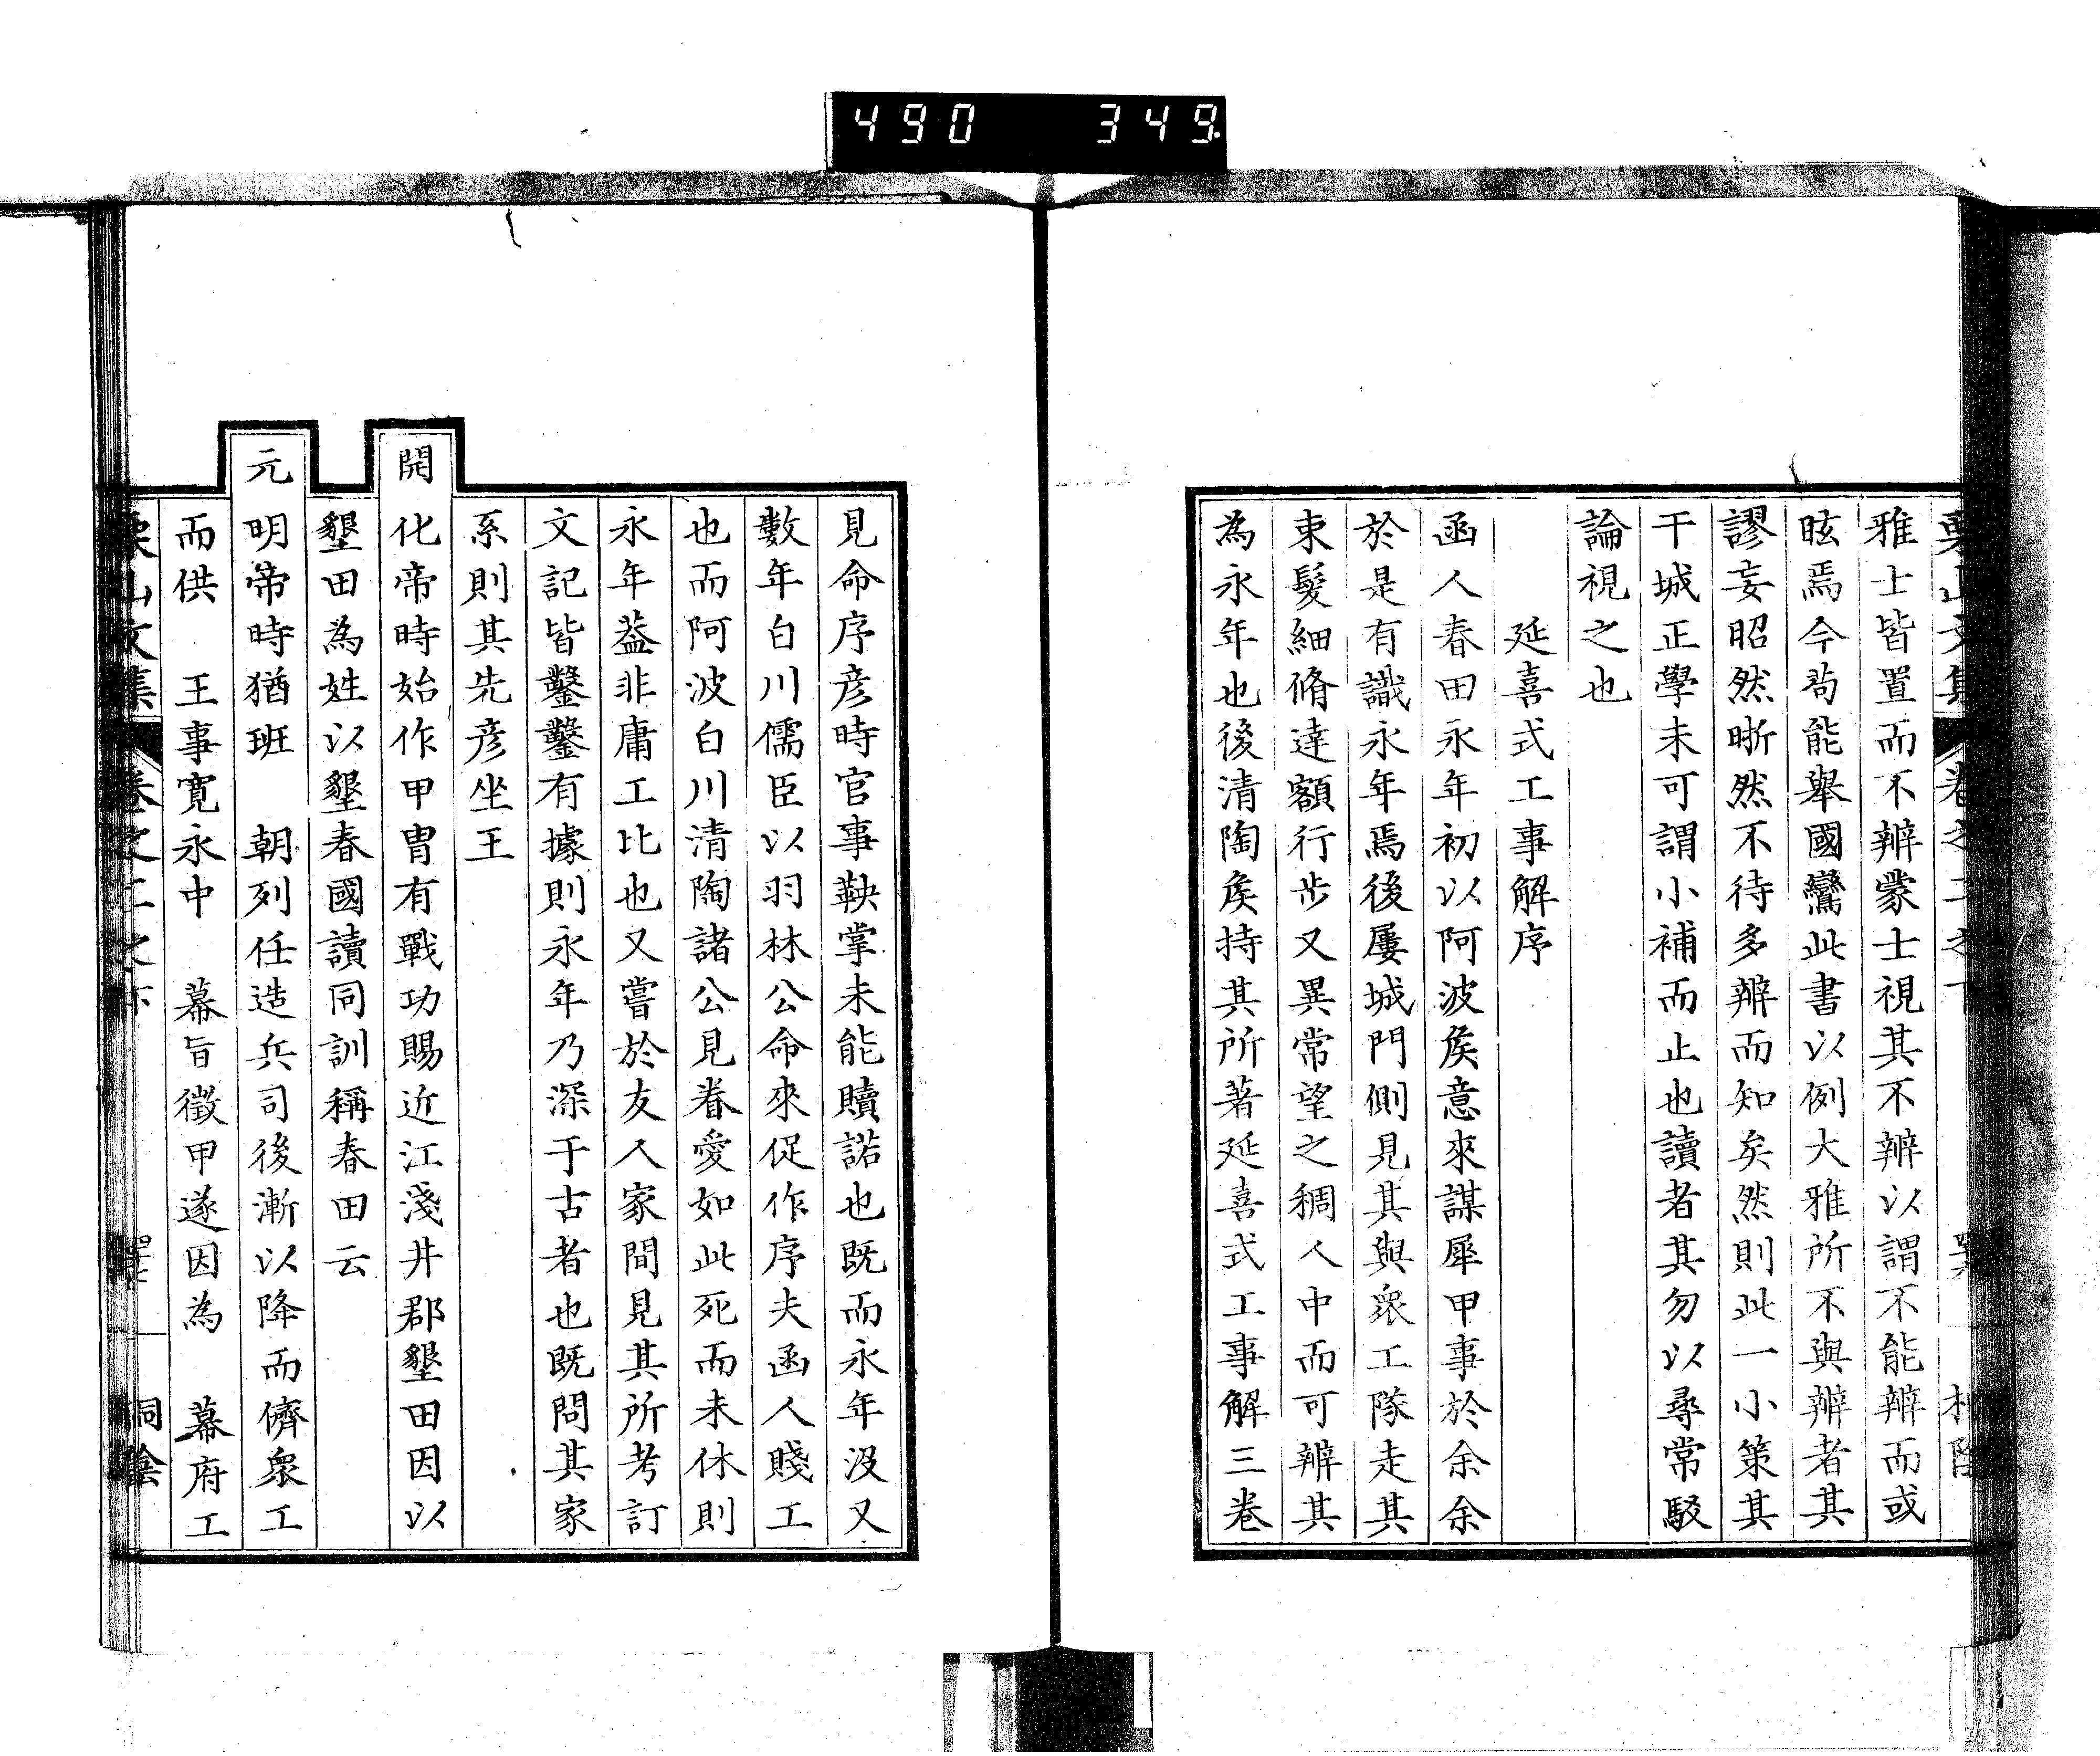 490 349
栗山文集 卷之二之下
雅士皆置而不辨蒙士視其不辨以謂不能辨而或
眩焉今茍能舉國鸞此書以例大雅所不與辨者其
謬妄昭然晣然不待多辨而知矣然則此一小策其
干城正學未可謂小補而止也讀者其勿以尋常駁
論視之也
延喜式工事解序
函人春田永年初以阿波矦意來謀犀甲事於余余
於是有識永年焉後屢城門側見其與眾工隊走其
東髮細脩達額行步又異常望之稠人中而可辨其
為永年也後清陶矦持其所著延喜式工事解三卷
見命序彥時官事鞅掌未能贖諾也既而永年沒又
數年白川儒臣以羽林公命來促作序夫函人賤工
也而阿波白川清陶諸公見眷愛如此死而未休則
永年葢非庸工比也又嘗於友人家間見其所考訂
文記皆鑿鑿有據則永年乃深于古者也既問其家
系則其先彥坐王
開化帝時始作甲冑有戰功賜近江淺井郡墾田因以
墾田為姓以墾春國讀同訓稱春田云
元明帝時猶班 朝列任造兵司後漸以降而儕眾工
而供 王事寬永中 幕旨徵甲遂因為 幕府工
栗山文集 卷之二之下 桐陰